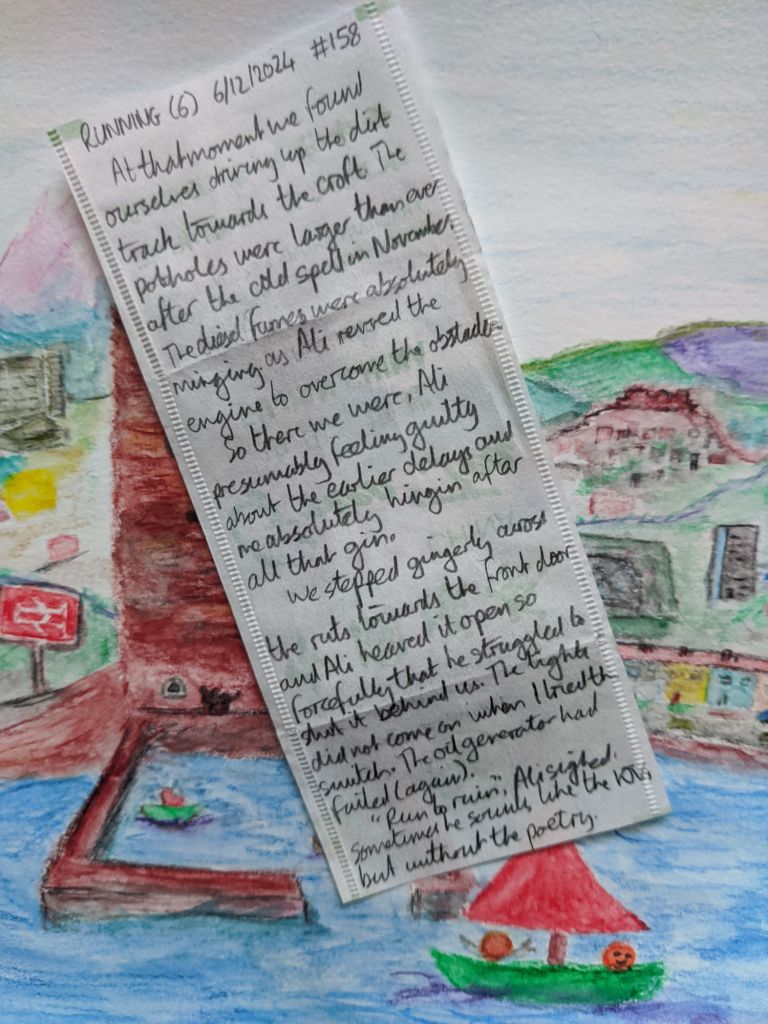 RUNNING (6) 6/12/2024 #158
At that moment we found
ourselves driving up the dirt
track towards the croft. The
potholes were larger than ever
after the cold spell in November.
The diesel fumes were absolutely
minging as Ali revved the
engine to overcome the obstacles.
So there we were, Ali
presumably feeling guilty
about the earlier delays and
me absolutely hingin after
all that gin.
We stepped gingerly across
the ruts towards the front door
and Ali heaved it open so
forcefully that he struggled to
shut it behind us. The lights
did not come on when I tried the
switch. The oil generator had
failed (again).
"Run to ruin," Ali sighed.
Sometimes he sounds like the
but without the poetry.